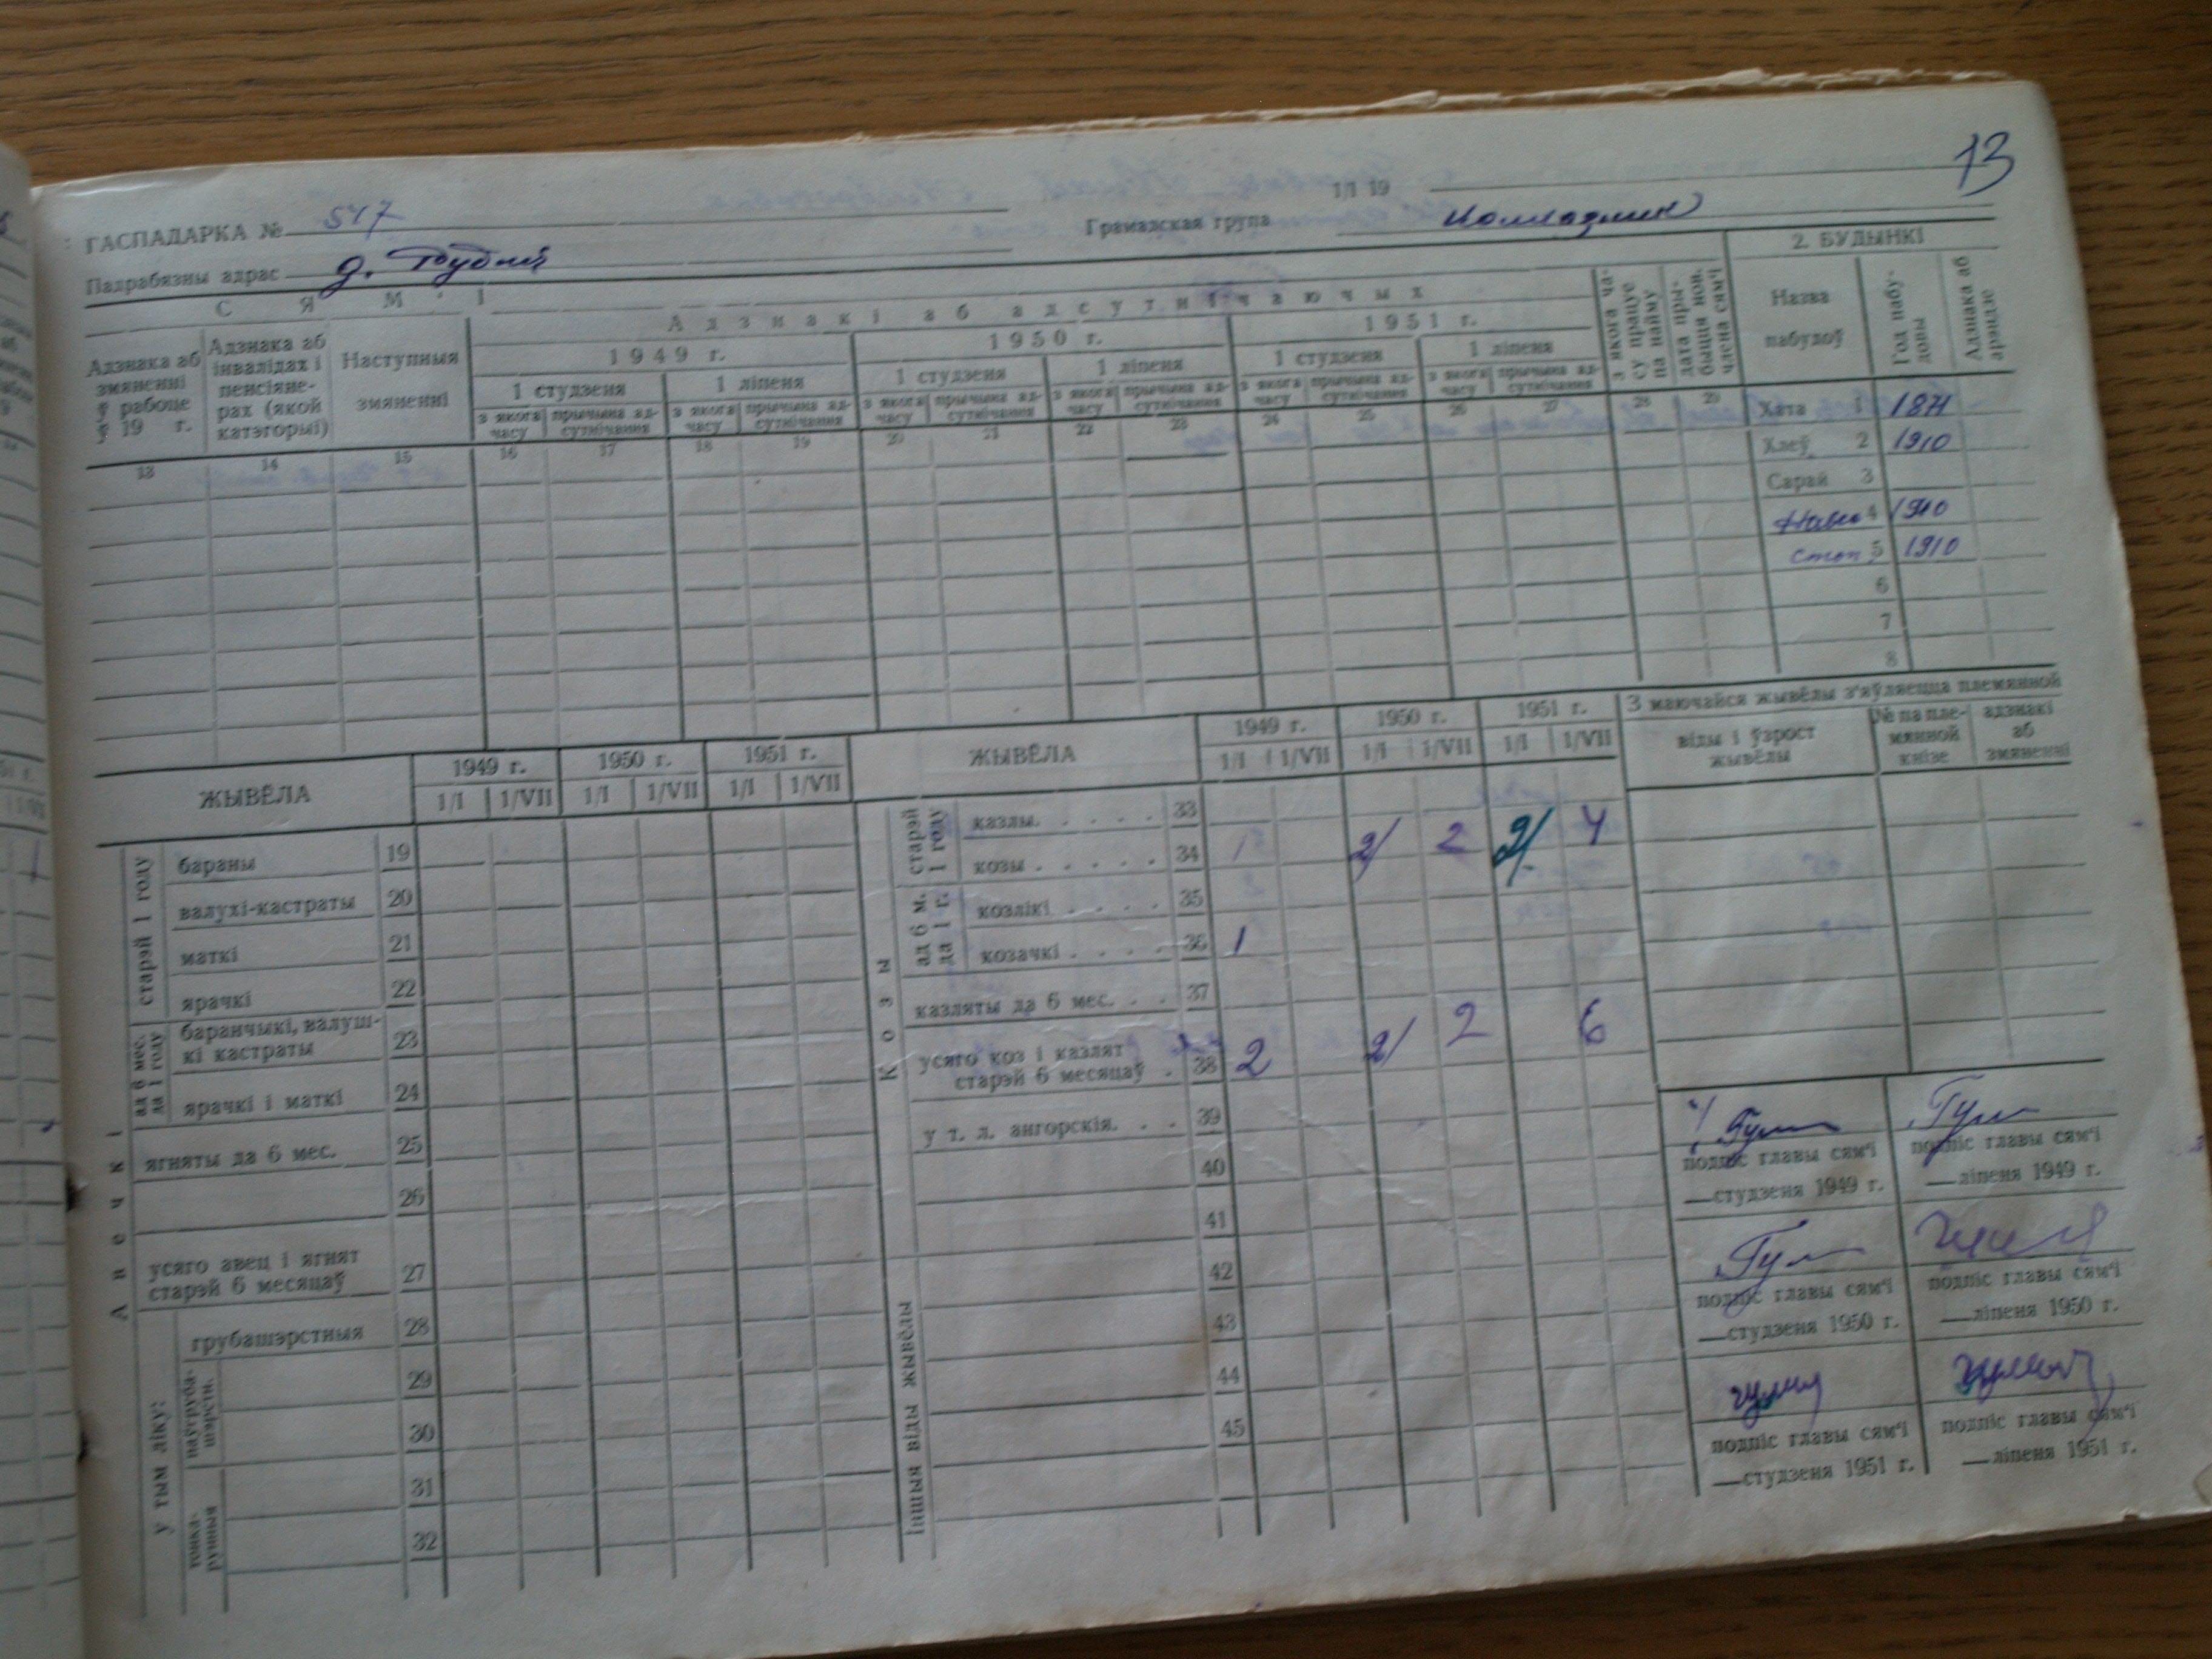 13
ГАСПАДАРКА № 547
1/I 19
Падрабязны адрас д.
Грамадская група
С Я М ' І
Адзнака аб змяненні ў рабоце ў 19 г.
Адзнака аб інвалідах і пенсіянерах (якой катэгорыі)
Наступныя змяненні
Адзнакі аб адсутнічаючых
1949 г. 1950 г. 1951 г.
1 студзеня 1 ліпеня 1 студзеня 1 ліпеня 1 студзеня 1 ліпеня
з якога часу прычына адсутнічання з якога часу прычына адсутнічання з якога часу прычына адсутнічання з якога часу прычына адсутнічання з якога часу прычына адсутнічання з якога часу прычына адсутнічання
з якога часу працуе па найму
дата прыбыцця нов. члена сям'і
13 14 15 16 17 18 19 20 21 22 23 24 25 26 27 28 29
2. БУДЫНКІ
Назва пабудоў
Год пабудовы
Адзнака аб арэндзе
Хата 1 1871
Хлеў 2 1910
Сарай 3
4 1910
5 1910
6
7
8
ЖЫВЁЛА 1949 г. 1950 г. 1951 г.
1/I 1/VII 1/I 1/VII 1/I 1/VII
Авечкі
старэй 1 году
бараны 19
валухі-кастраты 20
маткі 21
ярачкі 22
ад 6 мес. да 1 году
баранчыкі, валушкі кастраты 23
ярачкі і маткі 24
ягняты да 6 мес. 25
26
усяго авец і ягнят старэй 6 месяцаў 27
у тым ліку:
грубашэрстныя 28
паўгрубашэрстн.
29
30
тонкарунныя
31
32
ЖЫВЁЛА 1949 г. 1950 г. 1951 г.
1/I 1/VII 1/I 1/VII 1/I 1/VII
Козы
старэй 1 году
казлы. . . . . 33
козы . . . . . 34 1 2/ 2 2/ 4
ад 6 м. да 1 г.
козлікі . . . . 35
козачкі . . . . 36 1
казляты да 6 мес. . . 37
усяго коз і казлят старэй 6 месяцаў . 38 2 2/ 2 6
у т. л. ангорскія. . . 39
40
41
Іншыя віды жывёлы
42
43
44
45
З маючайся жывёлы з'яўляецца племянной
віды і ўзрост жывёлы
№ па племянной кнізе
адзнакі аб змяненні
подпіс главы сям'і подпіс главы сям'і
—студзеня 1949 г. —ліпеня 1949 г.
подпіс главы сям'і подпіс главы сям'і
—студзеня 1950 г. —ліпеня 1950 г.
подпіс главы сям'і подпіс главы сям'і
—студзеня 1951 г. —ліпеня 1951 г.